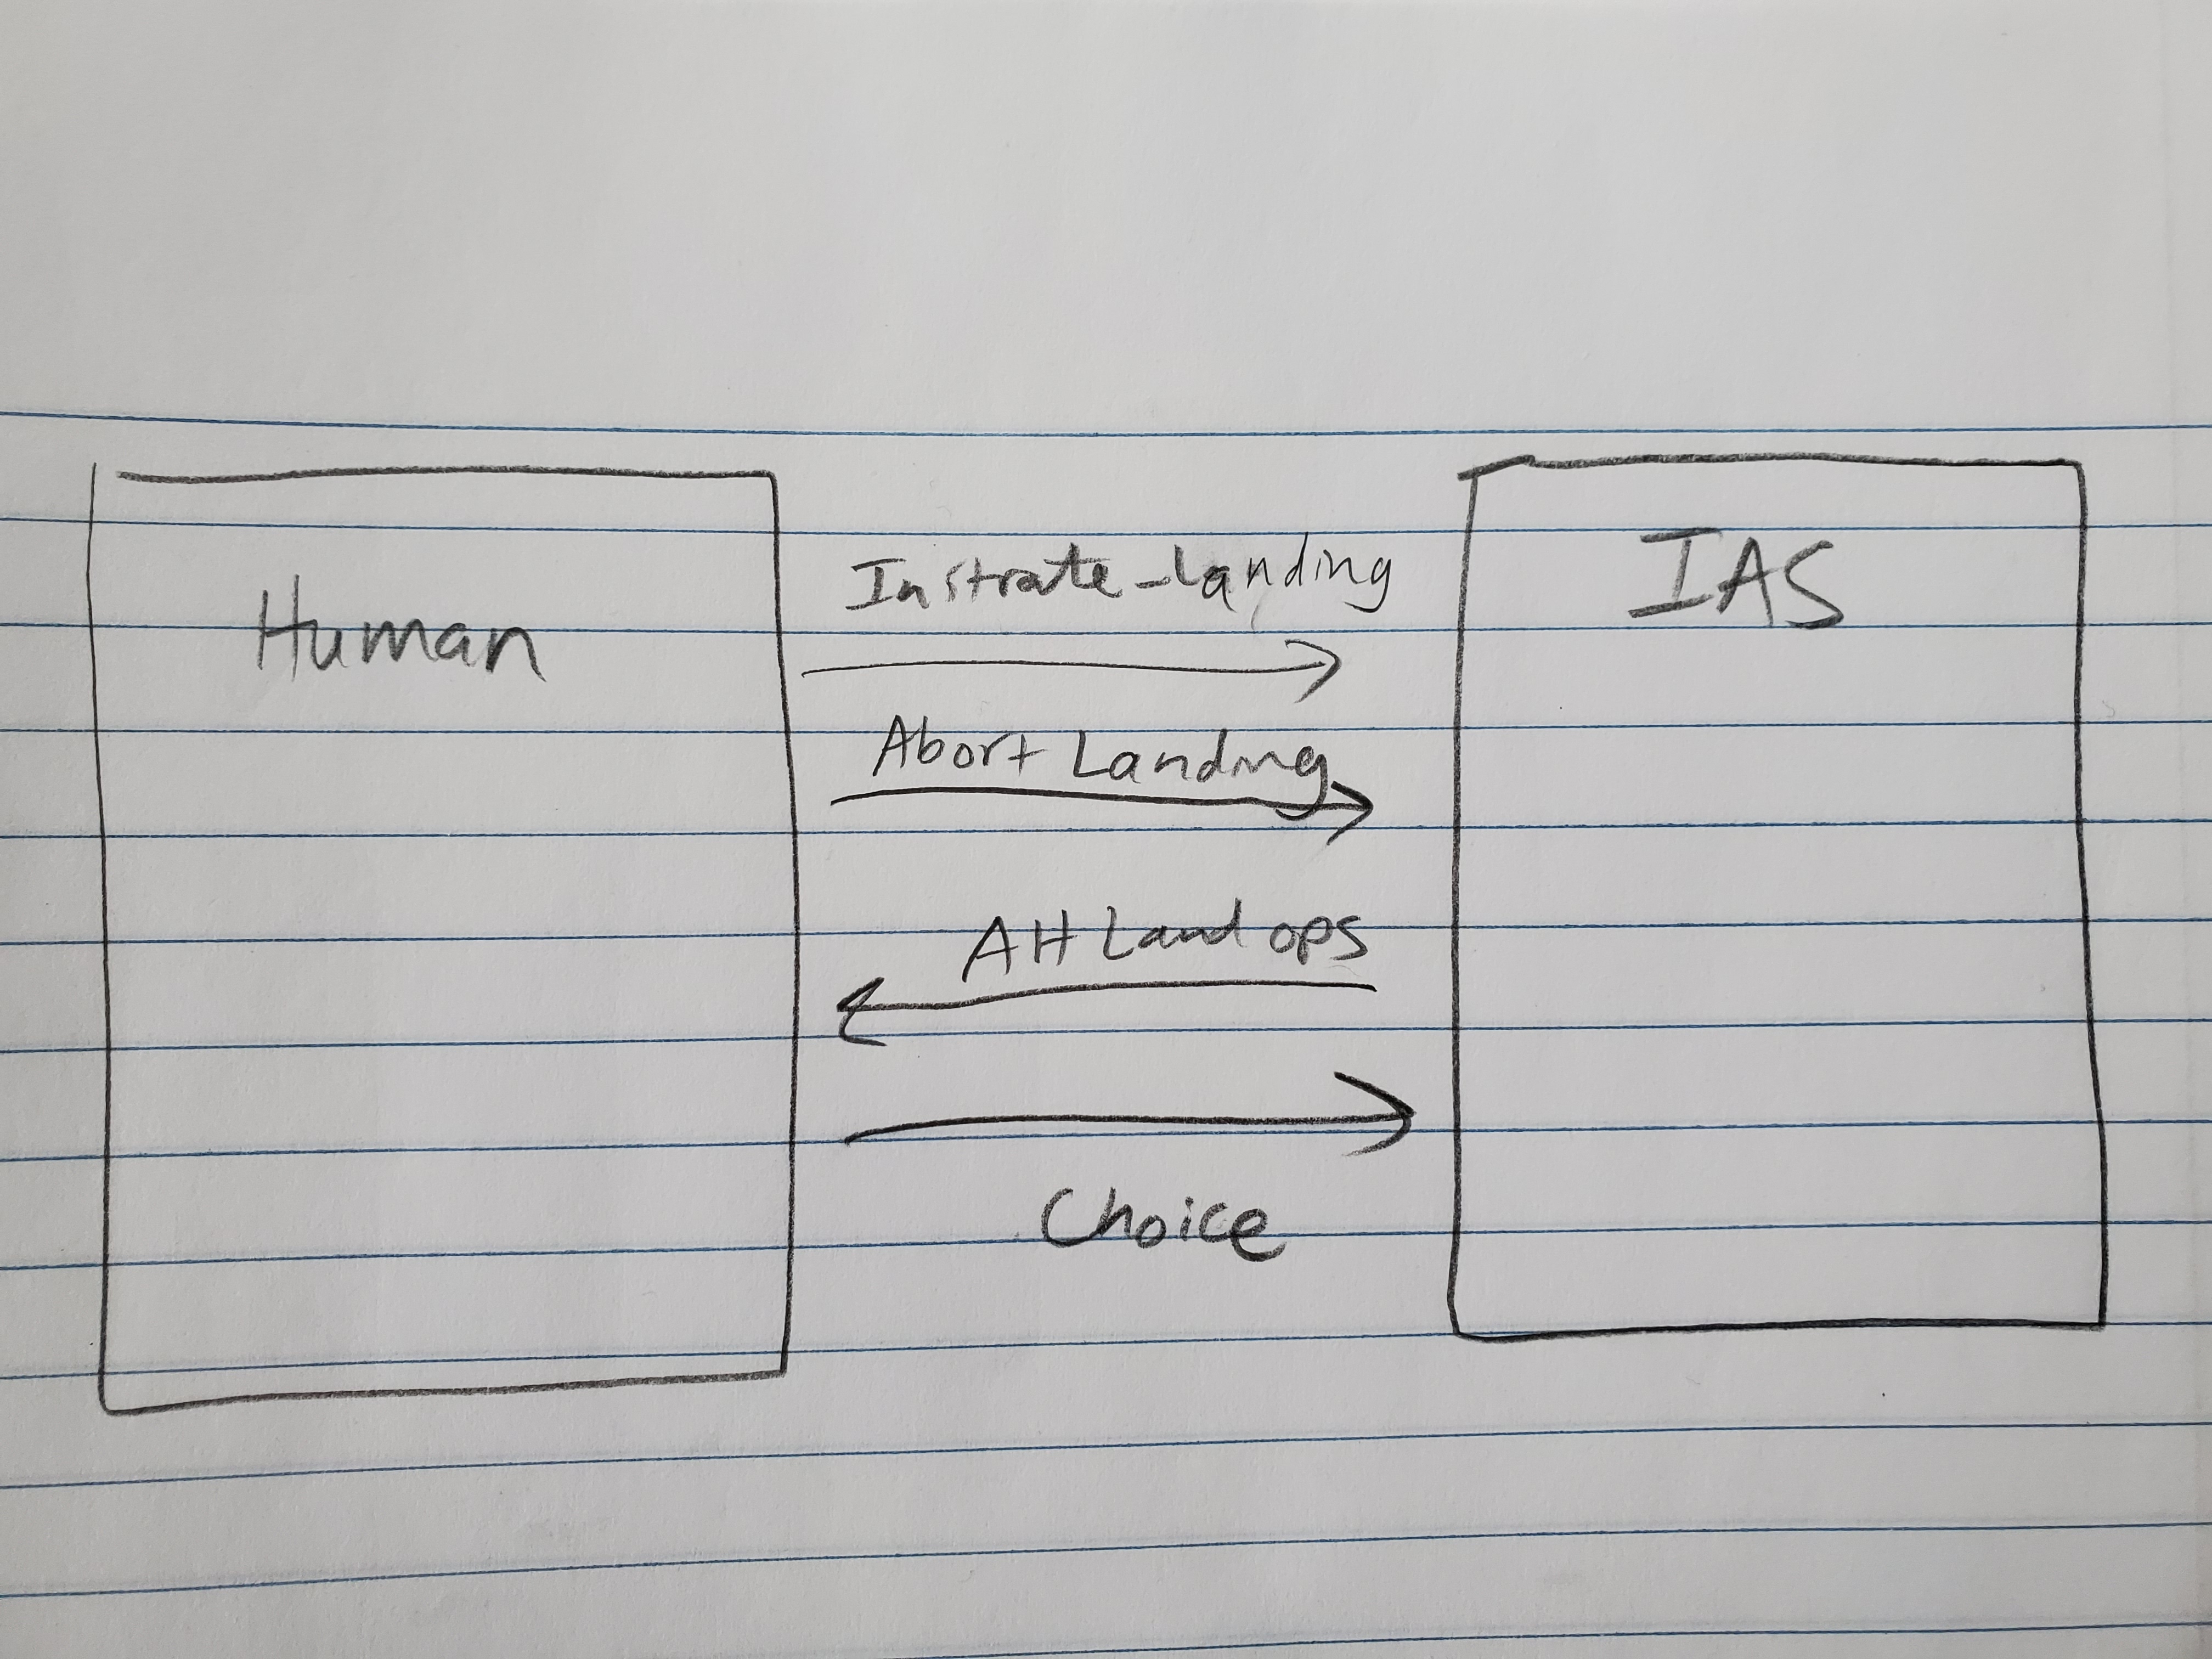 Human
IAS
Instrate-Landing
Abort Landing
AH Land ops
Choice